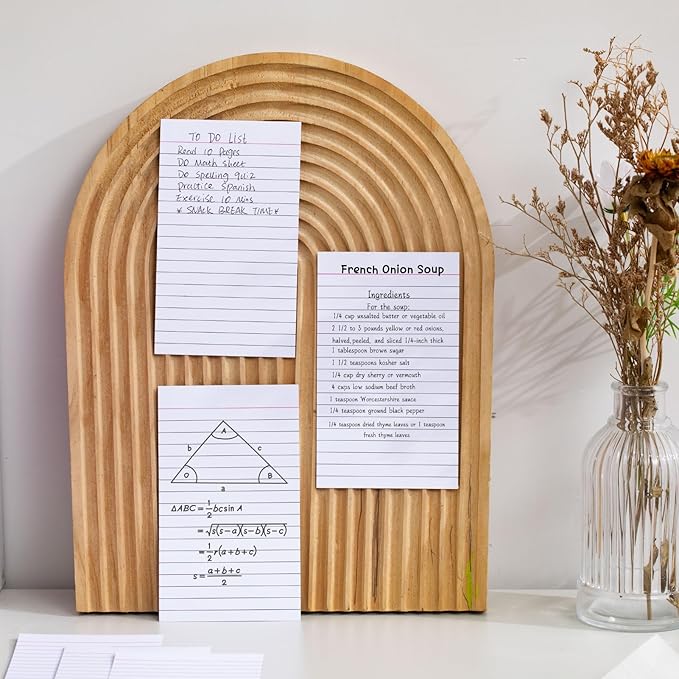 TO DO LIST
Read 10 Pages
DO Math sheet
Do Spelling quiz
Practice Spanish
Exercise 10 Mins
* SNACK BREAK TIME *
French Onion Soup
Ingredients
For the soup:
1/4 cup unsalted butter or vegetable oil
2 1/2 to 3 pounds yellow or red onions,
halved,peeled, and sliced 1/4-inch thick
1 tablespoon brown sugar
1 1/2 teaspoons kosher salt
1/4 cup dry sherry or vermouth
4 cups low sodium beef broth
1 teaspoon Worcestershire sauce
1/4 teaspoon ground black pepper
1/4 teaspoon dried thyme leaves or 1 teaspoon
fresh thyme leaves
A
b c
O B
a
△ABC = 1/2 bcsin A
= √s(s-a)(s-b)(s-c)
= 1/2 r(a+b+c)
s = a+b+c / 2